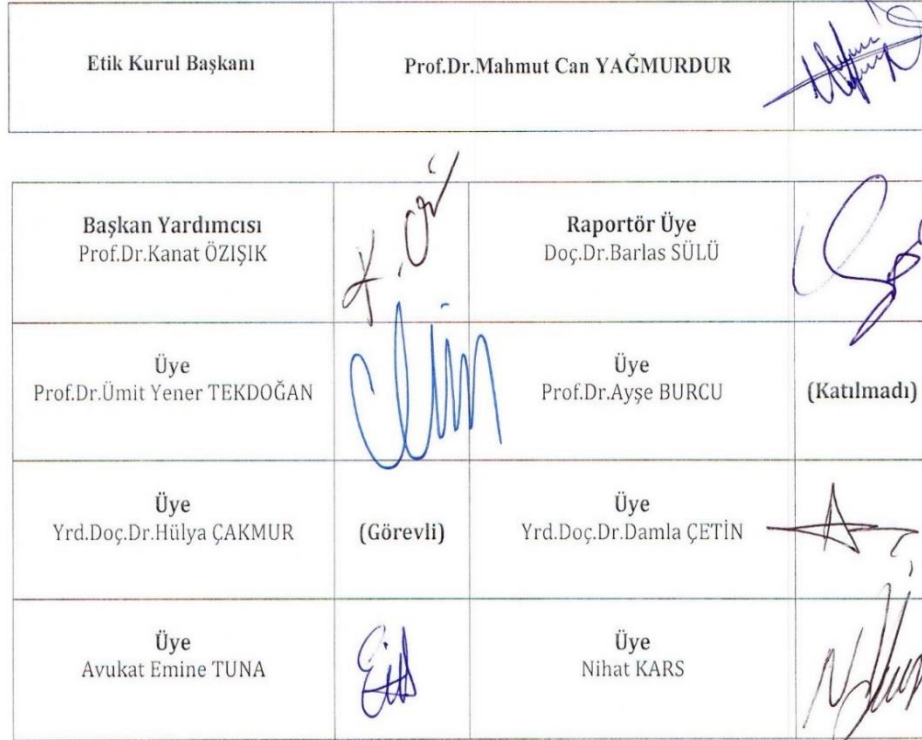 Etik Kurul Başkanı
Prof.Dr.Mahmut Can YAĞMURDUR
Başkan Yardımcısı
Prof.Dr.Kanat ÖZIŞIK
Raportör Üye
Doç.Dr.Barlas SÜLÜ
Üye
Prof.Dr.Ümit Yener TEKDOĞAN
Üye
Prof.Dr.Ayşe BURCU
(Katılmadı)
Üye
Yrd.Doç.Dr.Hülya ÇAKMUR
(Görevli)
Üye
Yrd.Doç.Dr.Damla ÇETİN
Üye
Avukat Emine TUNA
Üye
Nihat KARS